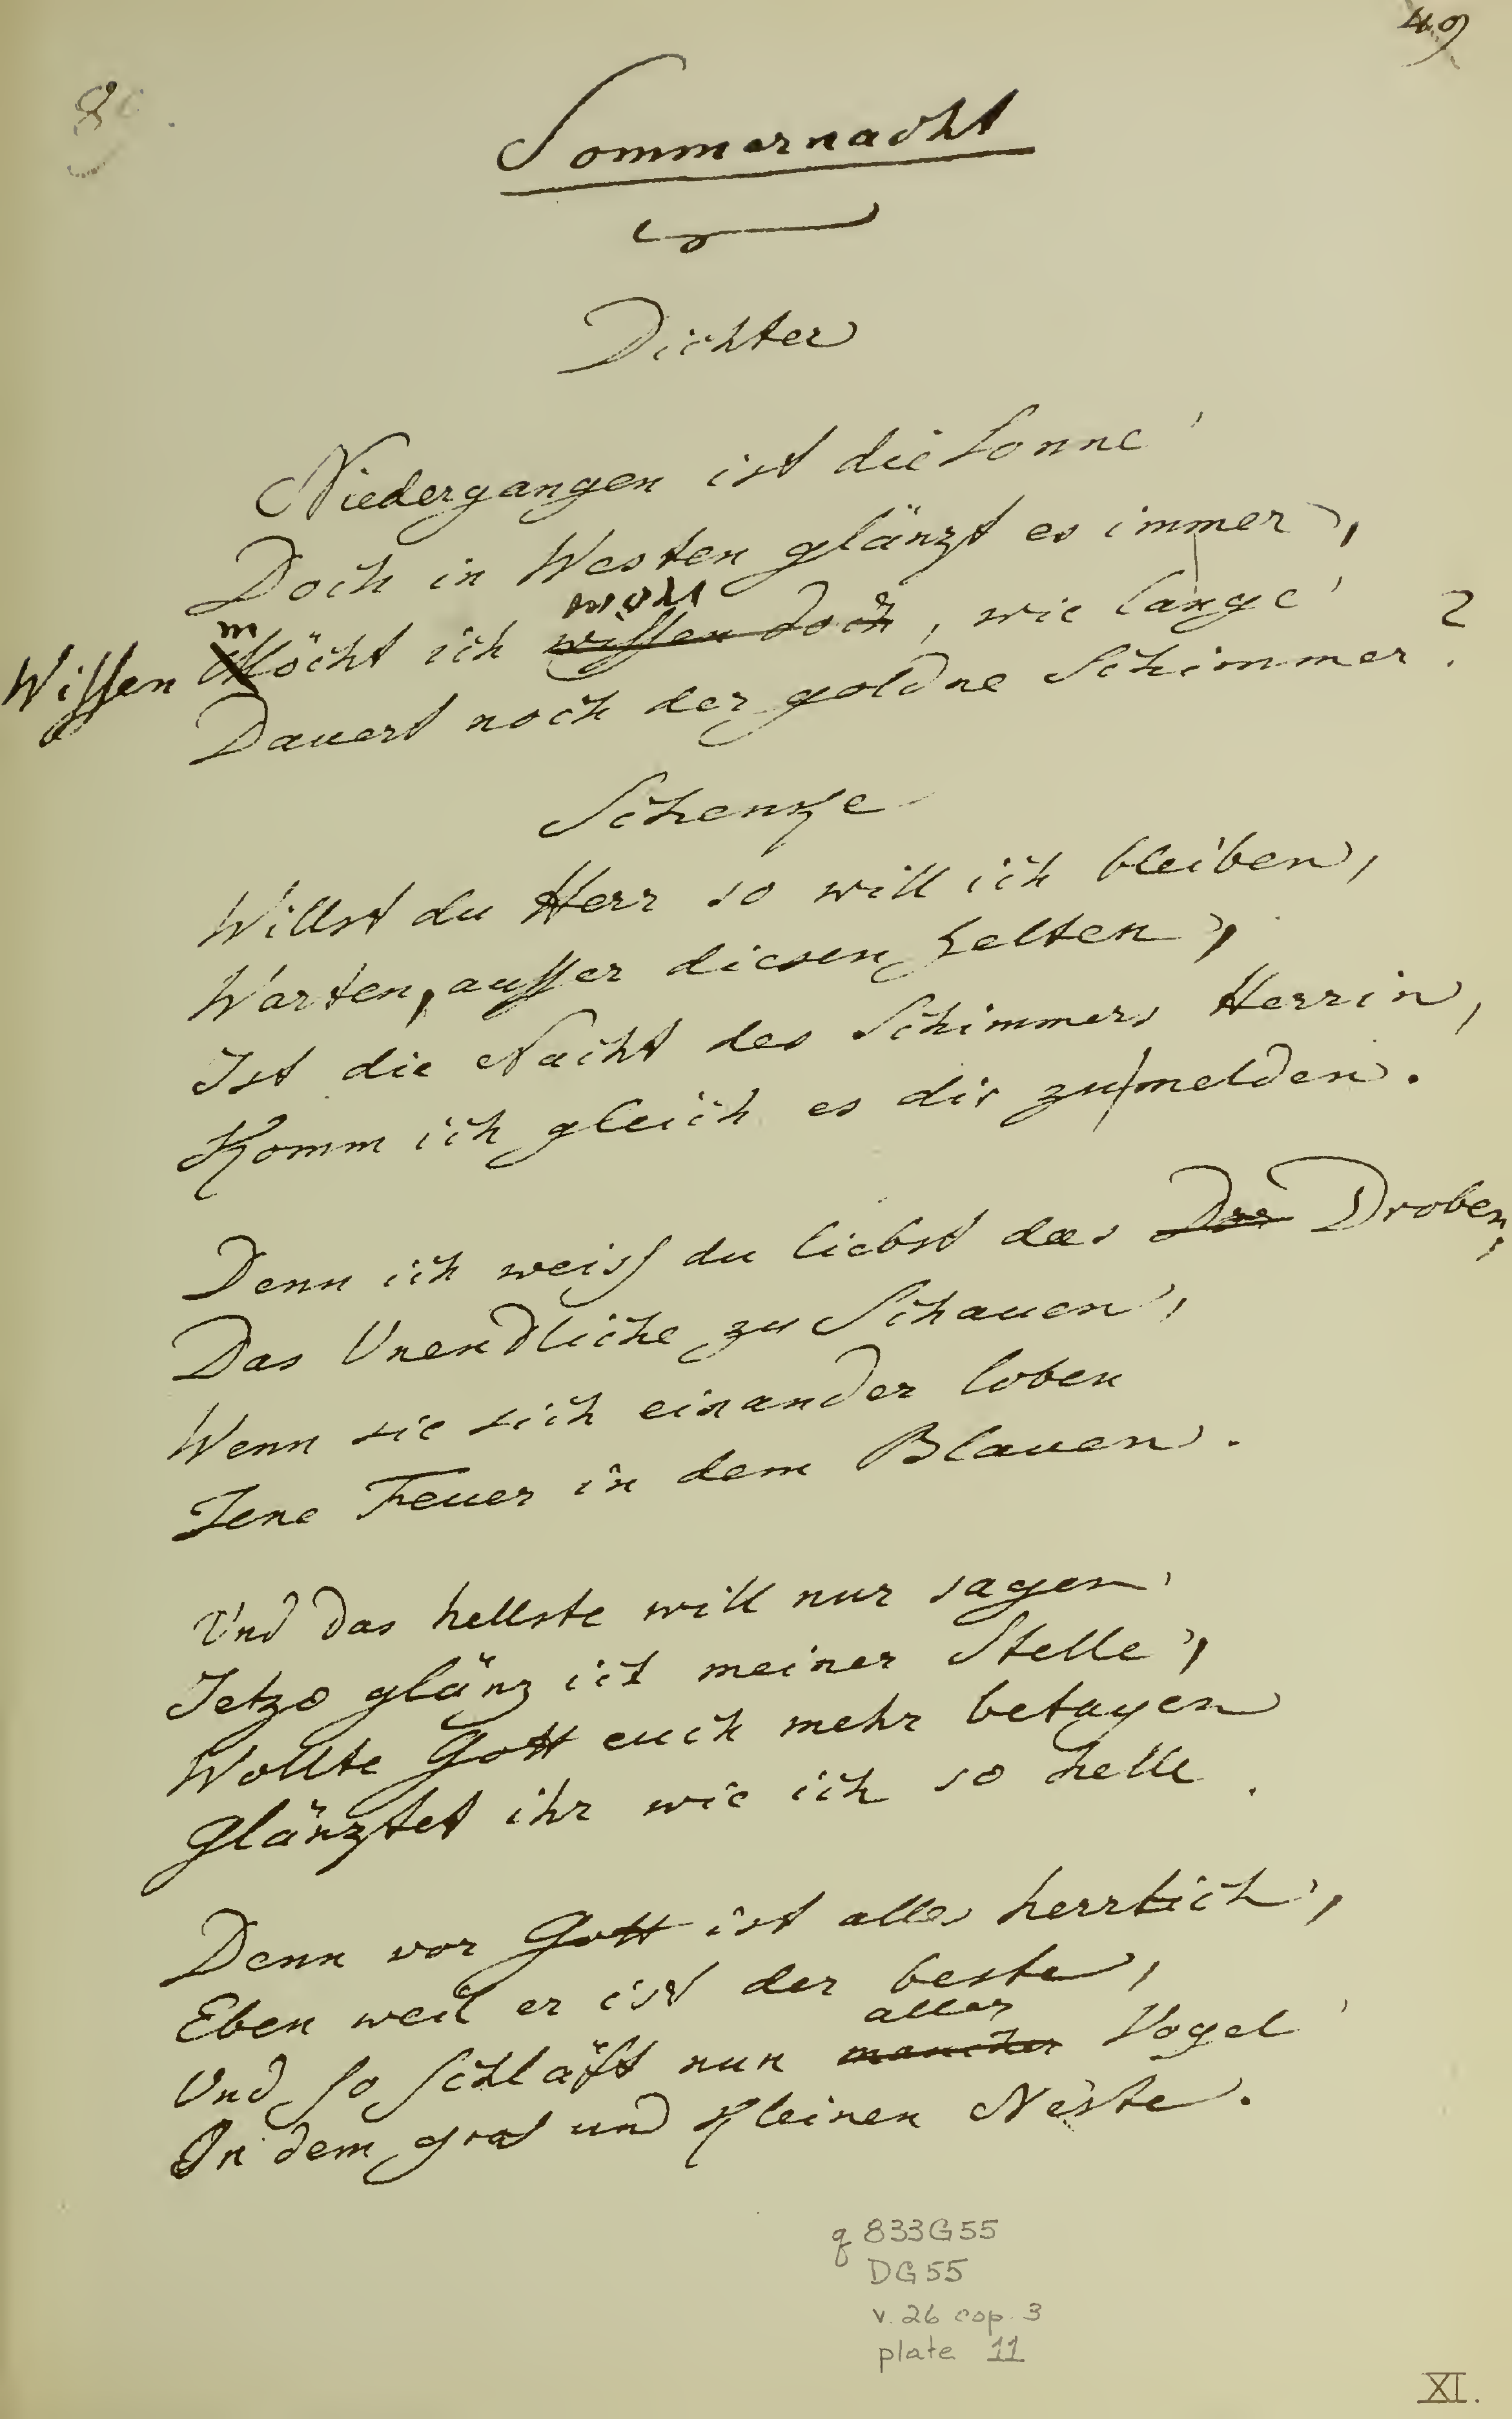 49
8
Sommernacht
Dichter
Niedergangen ist die Sonne
Doch in Westen glänzt es immer,
wohl
Wissen möcht ich wissen doch, wie lange
Dauert noch der goldne Schimmer?
Schenke
Willst du Herr so will ich bleiben,
Warten, ausser diesen Zelten,
Ist die Nacht des Schimmers Herrin,
Komm ich gleich es dir zu melden.
Denn ich weiss du liebst das Droben,
Das Unendliche zu Schauen,
Wenn sie sich einander loben
Jene Feuer in dem Blauen.
Und das hellste will nur sagen
Jetzo glänz ich meiner Stelle,
Wollte Gott euch mehr betagen
Glänztet ihr wie ich so helle.
Denn vor Gott ist alles herrlich,
Eben weil er ist der beste,
aller
Und so schläft nun mancher Vogel
In dem gros und kleinen Neste.
q 833G55
DG55
v. 26 cop. 3
plate 11
XI.